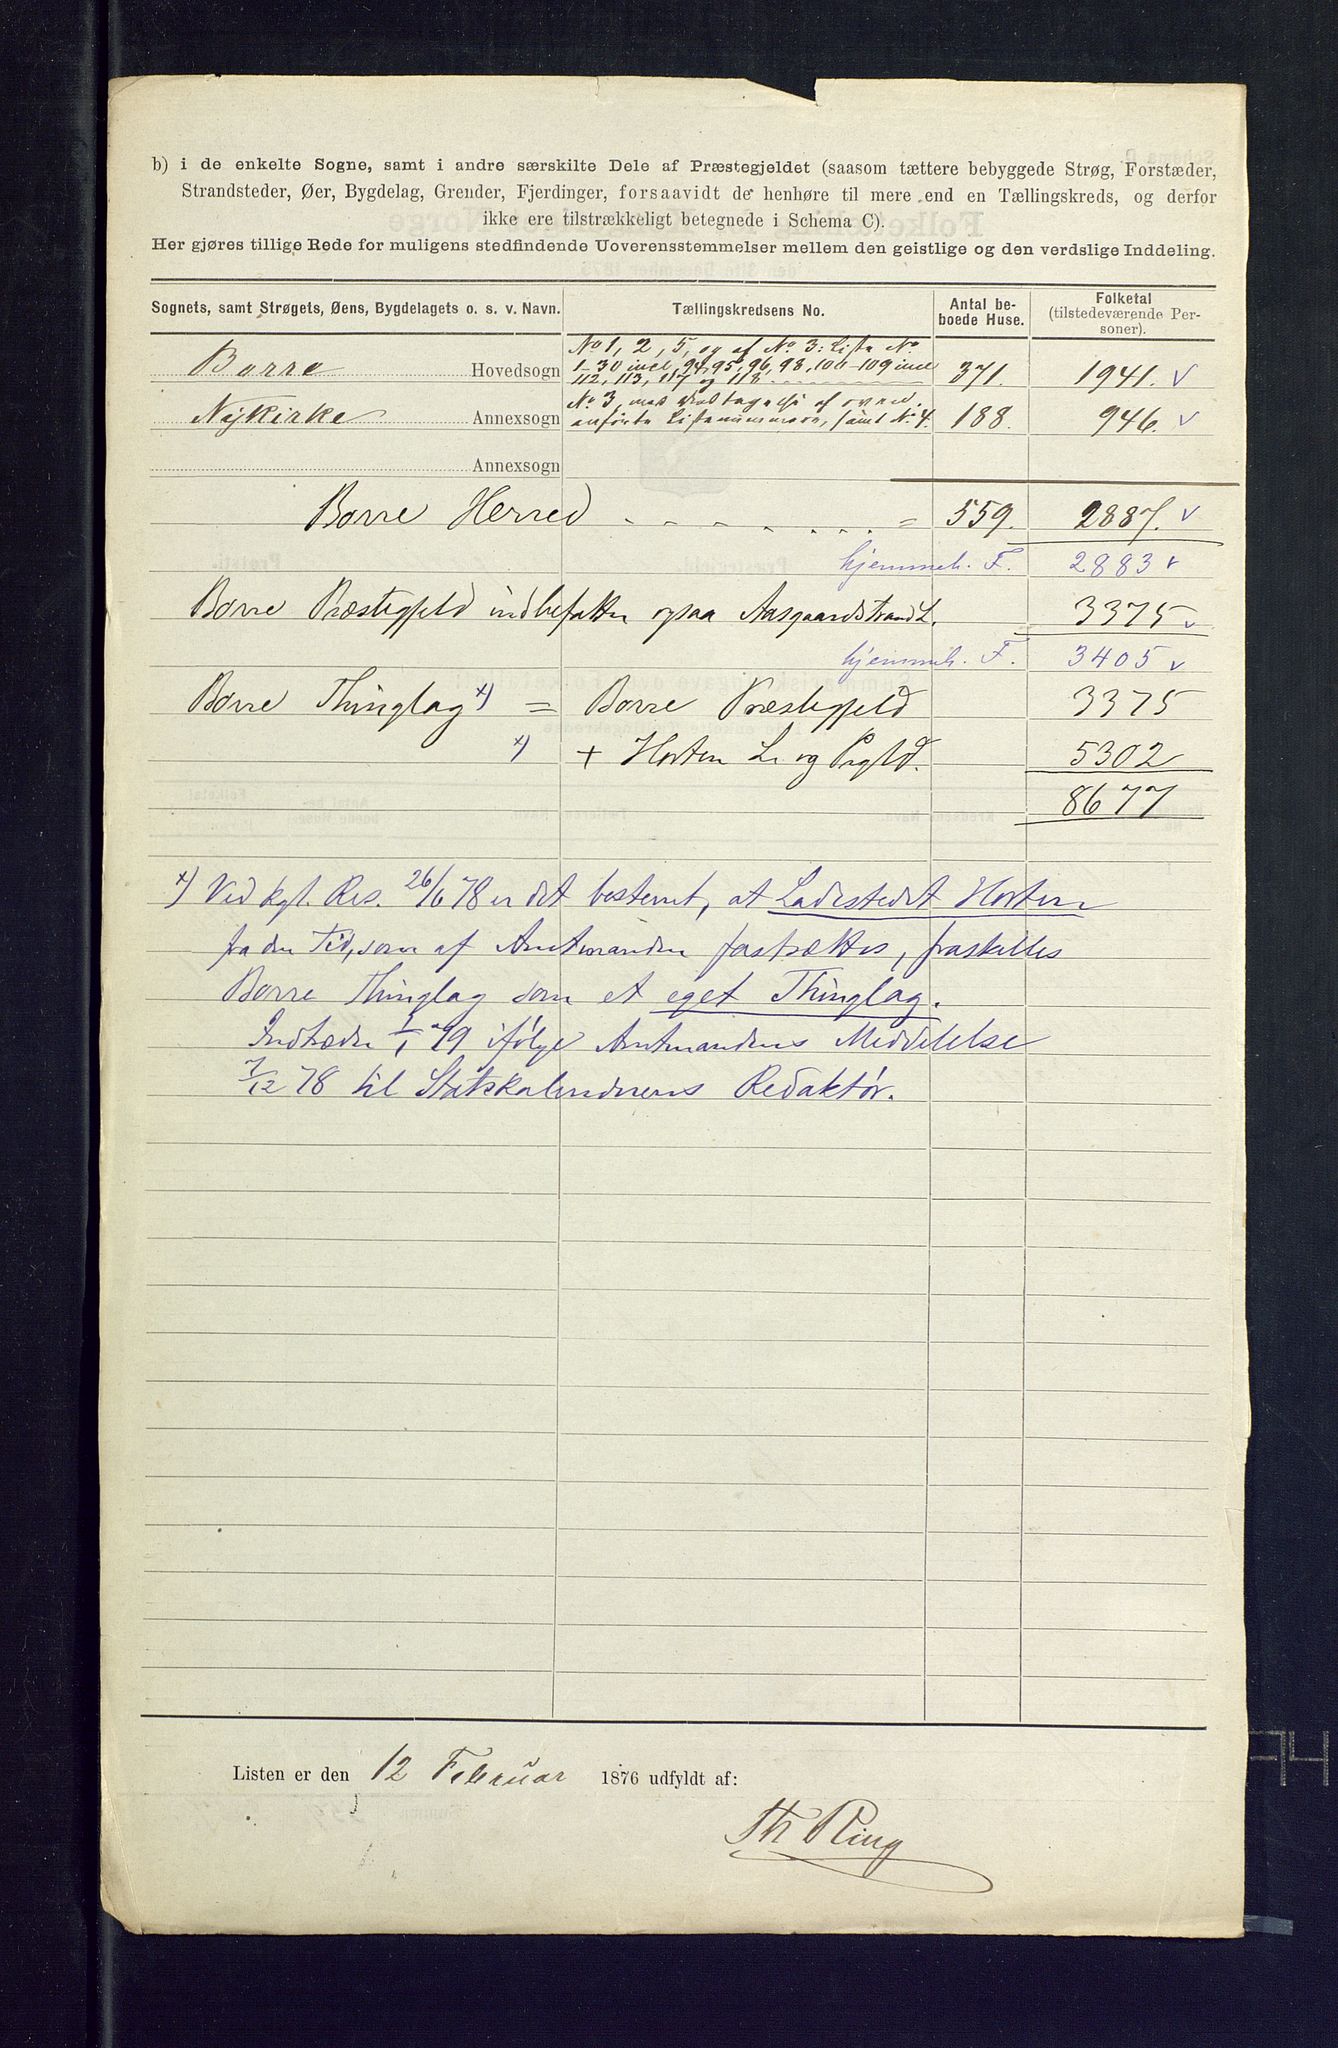 b) i de enkelte Sogne, samt i andre særskilte Dele af Præstegjeldet (saasom tættere bebyggede Strøg, Forstæder,
Strandsteder, Øer, Bygdelag, Grender, Fjerdinger, forsaavidt de henhøre til mere end en Tællingskreds, og derfor
ikke ere tilstrækkeligt betegnede i Schema C).
Her gjøres tillige Rede for muligens stedfindende Uoverensstemmelser mellem den geistlige og den verdslige Inddeling.
Sognets, samt Strøgets, Øens, Bygdelagets o. s. v. Navn. Tællingskredsens No. Antal beboede Huse. Folketal (tilstedeværende Personer).
No 1, 2, 5, og af No. 3: Liste No.
Borre Hovedsogn 1-30 incl, 94, 95, 96, 98, 100-109 incl 371. 1941. v
112, 113, 117 og 118
No. 3, med Undtagelse af oven
Nykirke Annexsogn anførte Listenummere, samt No. 4. 188. 946. v
Annexsogn
Borre Herred = 559. 2887. v
hjemmeh. F. 2883 v
Borre Præstegjeld indbefatter ogsaa Aasgaardstrand L. 3375 v
hjemmeh. F. 3405 v
Borre Thinglag x) = Borre Præstegjeld 3375
x) + Horten L. og Prgld. 5302
8677
x) Ved kgl. Res. 26/6 78 er det bestemt, at Ladestedet Horten
fra den Tid, som af Amtmanden fastsættes, fraskilles
Borre Thinglag som et eget Thinglag.
Indtræder 1/1 79 ifølge Amtmandens Meddelelse
7/12 78 til Statskalenderens Redaktør.
Listen er den 12 Februar 1876 udfyldt af:
Th Ring